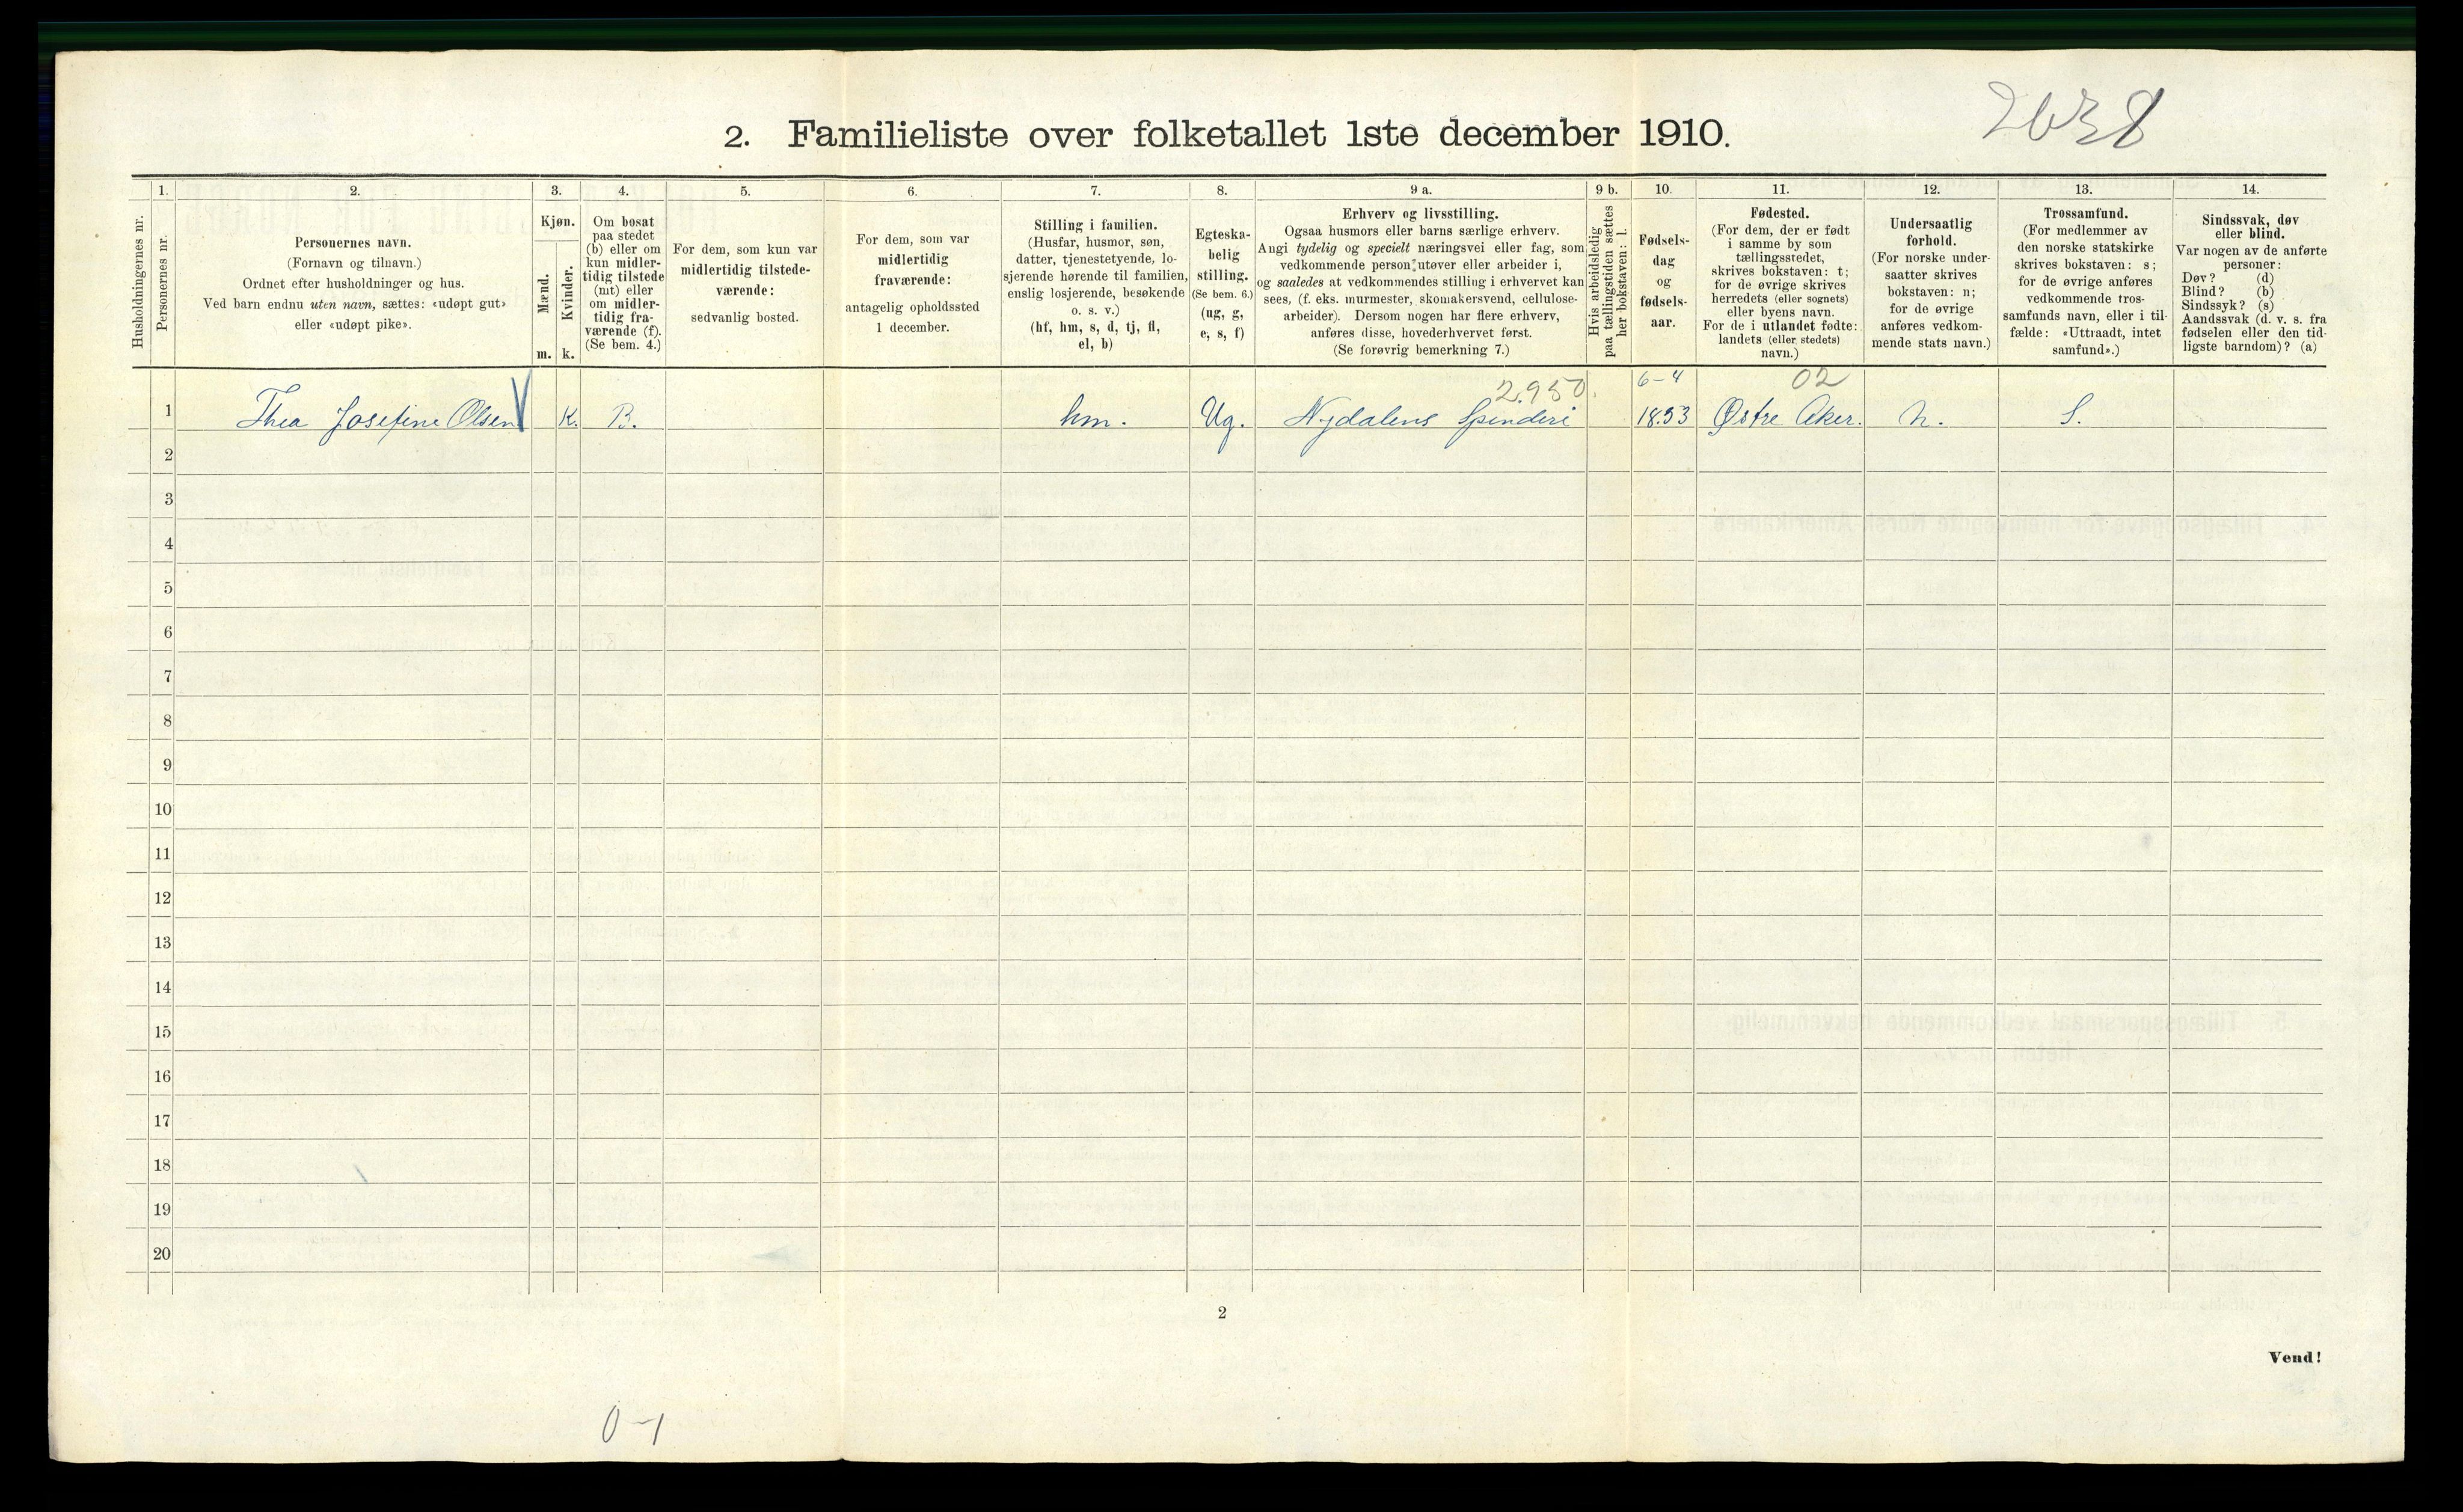 2638
2. Familieliste over folketallet 1ste december 1910.
1. 2. 3. 4. 5. 6. 7. 8. 9 a. 9 b. 10. 11. 12. 13. 14.
Husholdningernes nr.
Personernes nr.
Personernes navn.
(Fornavn og tilnavn.)
Ordnet efter husholdninger og hus.
Ved barn endnu uten navn, sættes: «udøpt gut»
eller «udøpt pike».
Kjøn.
Mænd.
Kvinder.
m. k.
Om bosat
paa stedet
(b) eller om
kun midler-
tidig tilstede
(mt) eller
om midler-
tidig fra-
værende (f).
(Se bem. 4.)
For dem, som kun var
midlertidig tilstede-
værende:
sedvanlig bosted.
For dem, som var
midlertidig
fraværende:
antagelig opholdssted
1 december.
Stilling i familien.
(Husfar, husmor, søn,
datter, tjenestetyende, lo-
sjerende hørende til familien,
enslig losjerende, besøkende
o. s. v.)
(hf, hm, s, d, tj, fl,
el, b)
Egteska-
belig
stilling.
(Se bem. 6.)
(ug, g,
e, s, f)
Erhverv og livsstilling.
Ogsaa husmors eller barns særlige erhverv.
Angi tydelig og specielt næringsvei eller fag, som
vedkommende person utøver eller arbeider i,
og saaledes at vedkommendes stilling i erhvervet kan
sees, (f. eks. murmester, skomakersvend, cellulose-
arbeider). Dersom nogen har flere erhverv,
anføres disse, hovederhvervet først.
(Se forøvrig bemerkning 7.)
Hvis arbeidsledig
paa tællingstiden sættes
her bokstaven: l.
Fødsels-
dag
og
fødsels-
aar.
Fødested.
(For dem, der er født
i samme by som
tællingsstedet,
skrives bokstaven: t;
for de øvrige skrives
herredets (eller sognets)
eller byens navn.
For de i utlandet fødte:
landets (eller stedets)
navn.)
Undersaatlig
forhold.
(For norske under-
saatter skrives
bokstaven: n;
for de øvrige
anføres vedkom-
mende stats navn.)
Trossamfund.
(For medlemmer av
den norske statskirke
skrives bokstaven: s;
for de øvrige anføres
vedkommende tros-
samfunds navn, eller i til-
fælde: «Uttraadt, intet
samfund».)
Sindssvak, døv
eller blind.
Var nogen av de anførte
personer:
Døv? (d)
Blind? (b)
Sindssyk? (s)
Aandssvak (d. v. s. fra
fødselen eller den tid-
ligste barndom)? (a)
2.950. 6-4 02
1 Thea Josefine Olsen K. B. hm. Ug. Nydalens Spinderi 1853 Østre Aker. n. S.
2
3
4
5
6
7
8
9
10
11
12
13
14
15
16
17
18
19
20
2
Vend!
0-1